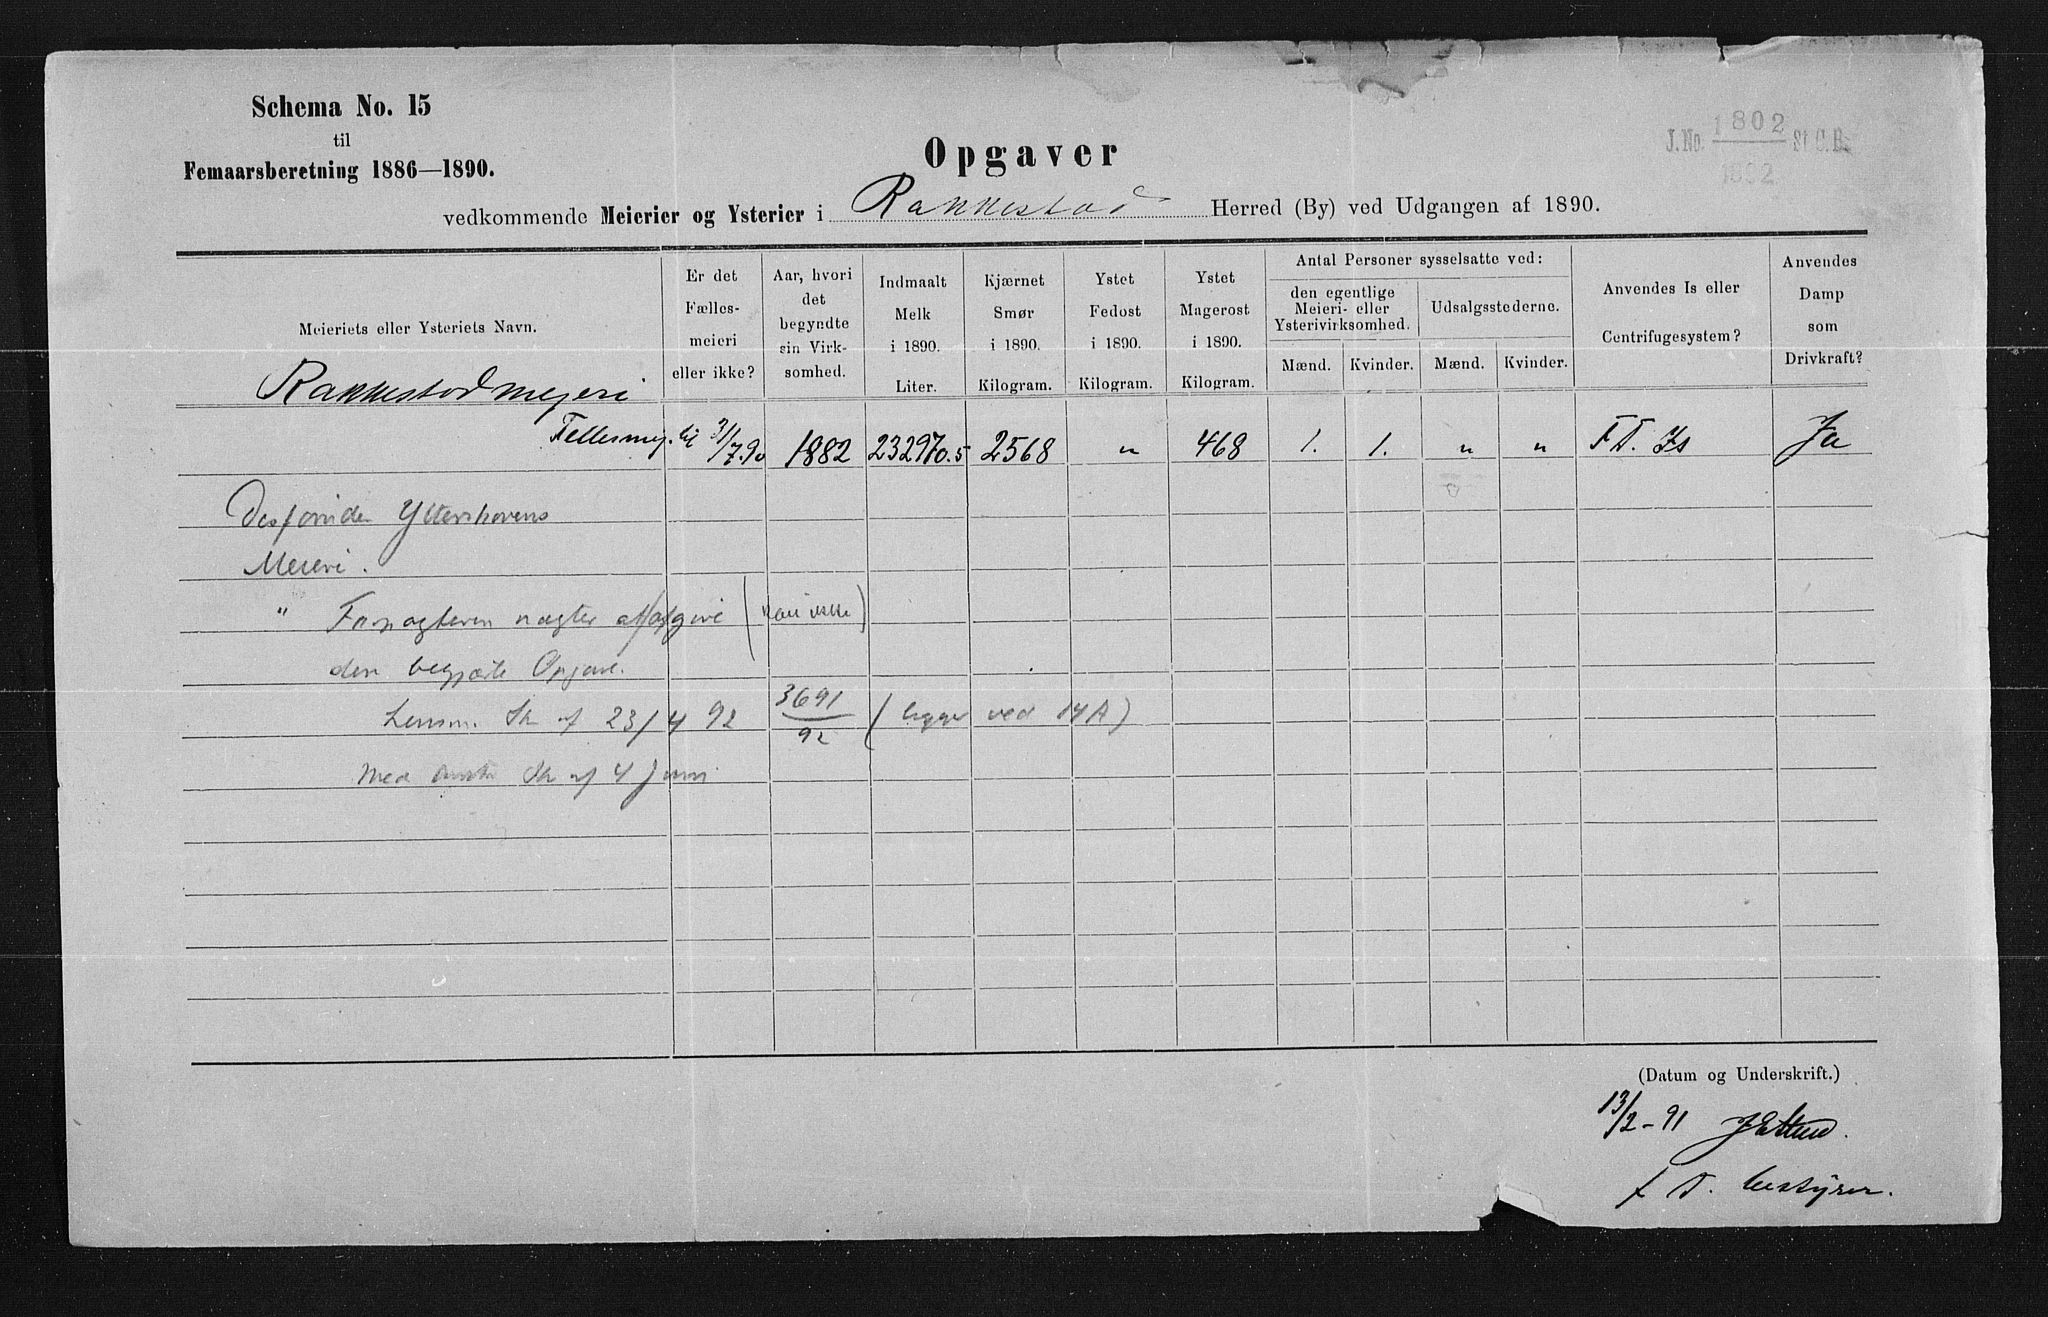 Schema No. 15
til
Femaarsberetning 1886—1890.
J. No. 1802 St. C. B.
Opgaver
vedkommende Meierier og Ysterier i Rakkestad Herred (By) ved Udgangen af 1890.
Meieriets eller Ysteriets Navn.
Er det Fælles-meieri eller ikke?
Aar, hvori det begyndte sin Virk-somhed.
Indmaalt Melk i 1890. Liter.
Kjærnet Smør i 1890. Kilogram.
Ystet Fedost i 1890. Kilogram.
Ystet Magerost i 1890. Kilogram.
Antal Personer sysselsatte ved:
den egentlige Meieri- eller Ysterivirksomhed.
Udsalgsstederne.
Mænd. Kvinder. Mænd. Kvinder.
Anvendes Is eller Centrifugesystem?
Anvendes Damp som Drivkraft?
Rakkestad mejeri
Fellesmej. til 31/7.90 1882 232970.5 2568 " 468 1. 1. " " F. T. Is Ja
Desforuden
Meieri.
" Forpagteren nægter at afgive (kan ikke)
den begjærte Opgave.
Lensm. Sk af 23/4 92 3691/92 (ligger ved 14A)
Med Sk af 4 Juni
(Datum og Underskrift.)
13/2 - 91
f. T. bestyrer.